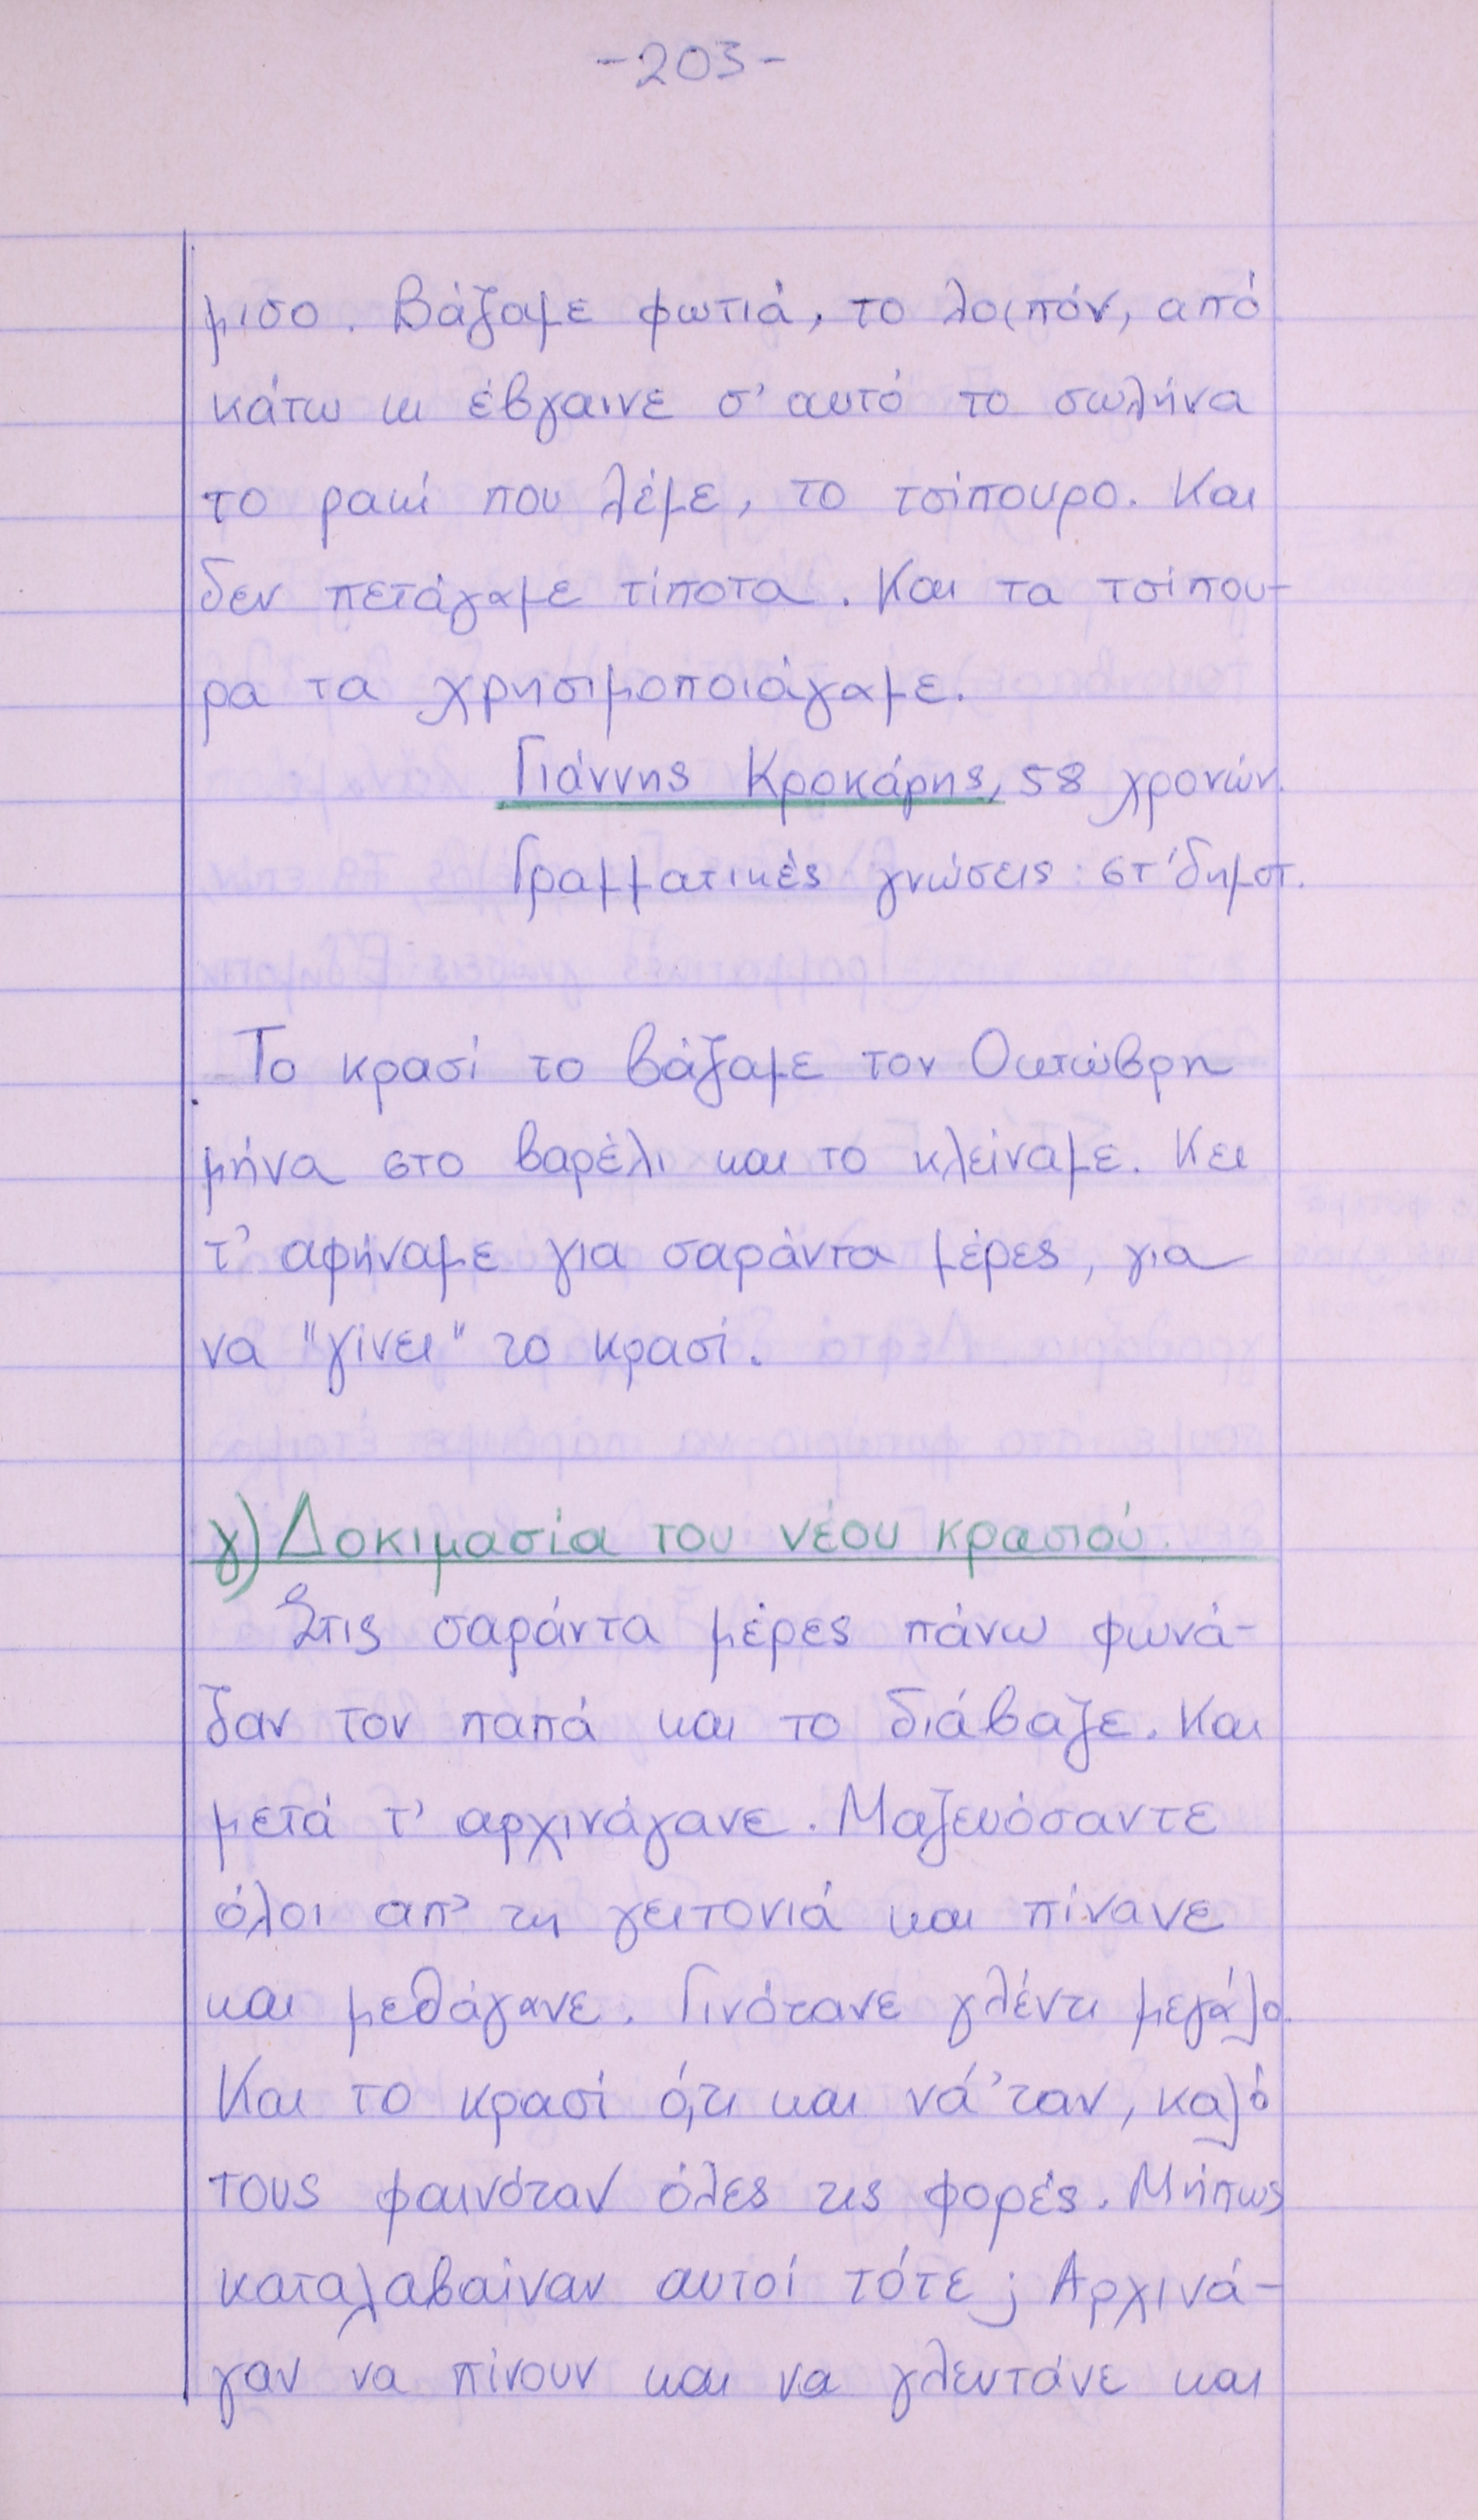 -203-
μισο. Βάζαμε φωτιά, το λοιπόν, από
κάτω κι έβγαινε σ' αυτό το σωλήνα
το ρακί που λέμε, το τσίπουρο. Και
δεν πετάγαμε τίποτα. Και τα τσίπου-
ρα τα χρησιμοποιάγαμε.
Γιάννης Κροκάρης, 58 χρονών.
Γραμματικές γνώσεις: στ' δημοτ.
Το κρασί το βάζαμε τον Οκτώβρη
μήνα στο βαρέλι και το κλείναμε. Και
τ' αφήναμε για σαράντα μέρες, για
να "γίνει" το κρασί.
γ) Δοκιμασία του νέου κρασιού.
Στις σαράντα μέρες πάνω φωνά-
ζαν τον παπά και το διάβαζε. Και
μετά τ' αρχινάγανε. Μαζευόσαντε
όλοι απ' τη γειτονιά και πίνανε
και μεθάγανε. Γινότανε γλέντι μεγάλο.
Και το κρασί ό,τι και νά 'ταν, καλό
τους φαινόταν όλες τις φορές. Μήπως
καταλαβαίναν αυτοί τότε; Αρχινά-
γαν να πίνουν και να γλεντάνε και